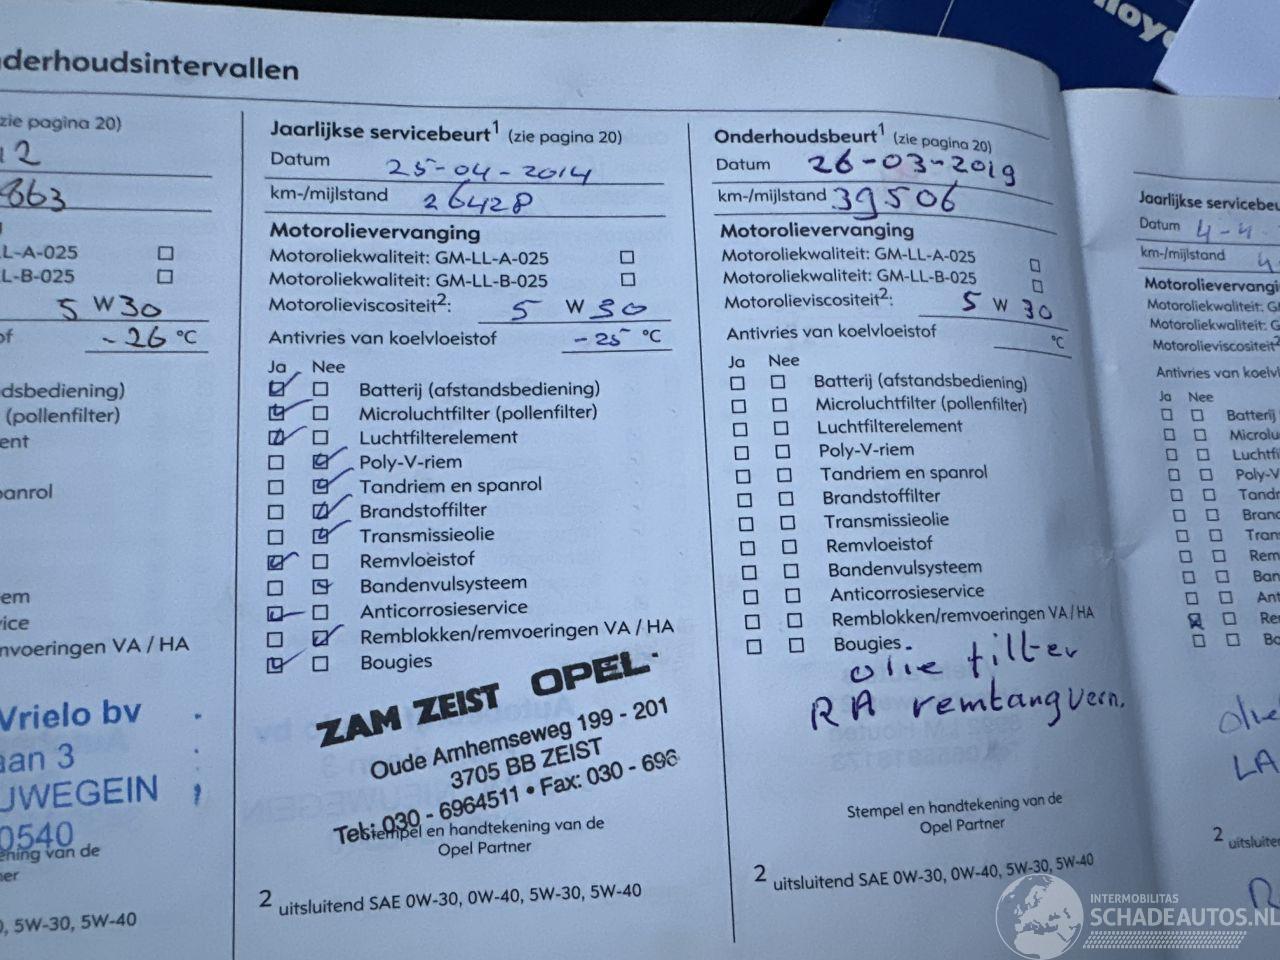 nderhoudsintervallen
zie pagina 20)
12
863
LL-A-025
LL-B-025
5 W30
of -26 °C
dsbediening)
(pollenfilter)
ent
panrol
em
vice
mvoeringen VA / HA
Vrielo bv
aan 3
UWEGEIN
0540
ening van de
ner
, 5W-30, 5W-40
Jaarlijkse servicebeurt1 (zie pagina 20)
Datum 25-04-2014
km-/mijlstand 26428
Motorolievervanging
Motoroliekwaliteit: GM-LL-A-025
Motoroliekwaliteit: GM-LL-B-025
Motorolieviscositeit2: 5 W 30
Antivries van koelvloeistof -25 °C
Ja Nee
Batterij (afstandsbediening)
Microluchtfilter (pollenfilter)
Luchtfilterelement
Poly-V-riem
Tandriem en spanrol
Brandstoffilter
Transmissieolie
Remvloeistof
Bandenvulsysteem
Anticorrosieservice
Remblokken/remvoeringen VA / HA
Bougies
ZAM ZEIST OPEL
Oude Arnhemseweg 199 - 201
3705 BB ZEIST
Tel: 030 - 6964511 • Fax: 030 - 696
Stempel en handtekening van de
Opel Partner
2 uitsluitend SAE 0W-30, 0W-40, 5W-30, 5W-40
Onderhoudsbeurt1 (zie pagina 20)
Datum 26-03-2019
km-/mijlstand 39506
Motorolievervanging
Motoroliekwaliteit: GM-LL-A-025
Motoroliekwaliteit: GM-LL-B-025
Motorolieviscositeit2: 5 W 30
Antivries van koelvloeistof °C
Ja Nee
Batterij (afstandsbediening)
Microluchtfilter (pollenfilter)
Luchtfilterelement
Poly-V-riem
Tandriem en spanrol
Brandstoffilter
Transmissieolie
Remvloeistof
Bandenvulsysteem
Anticorrosieservice
Remblokken/remvoeringen VA / HA
Bougies
olie filter
RA remtang vern.
Stempel en handtekening van de
Opel Partner
2 uitsluitend SAE 0W-30, 0W-40, 5W-30, 5W-40
Jaarlijkse servicebeu
Datum 4-4-
km-/mijlstand 4
Motorolievervangi
Motoroliekwaliteit: G
Motoroliekwaliteit: G
Motorolieviscositeit2
Antivries van koelvl
Ja Nee
Batterij
Microlu
Luchtfi
Poly-V
Tandr
Brand
Tran
Rem
Ban
Ant
Re
Bo
olie
LA
2 uitsluiten
R
INTERMOBILITAS
SCHADEAUTOS.NL